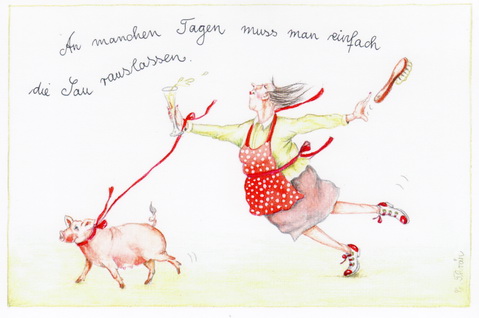 An manchen Tagen muss man einfach
die Sau rauslassen.